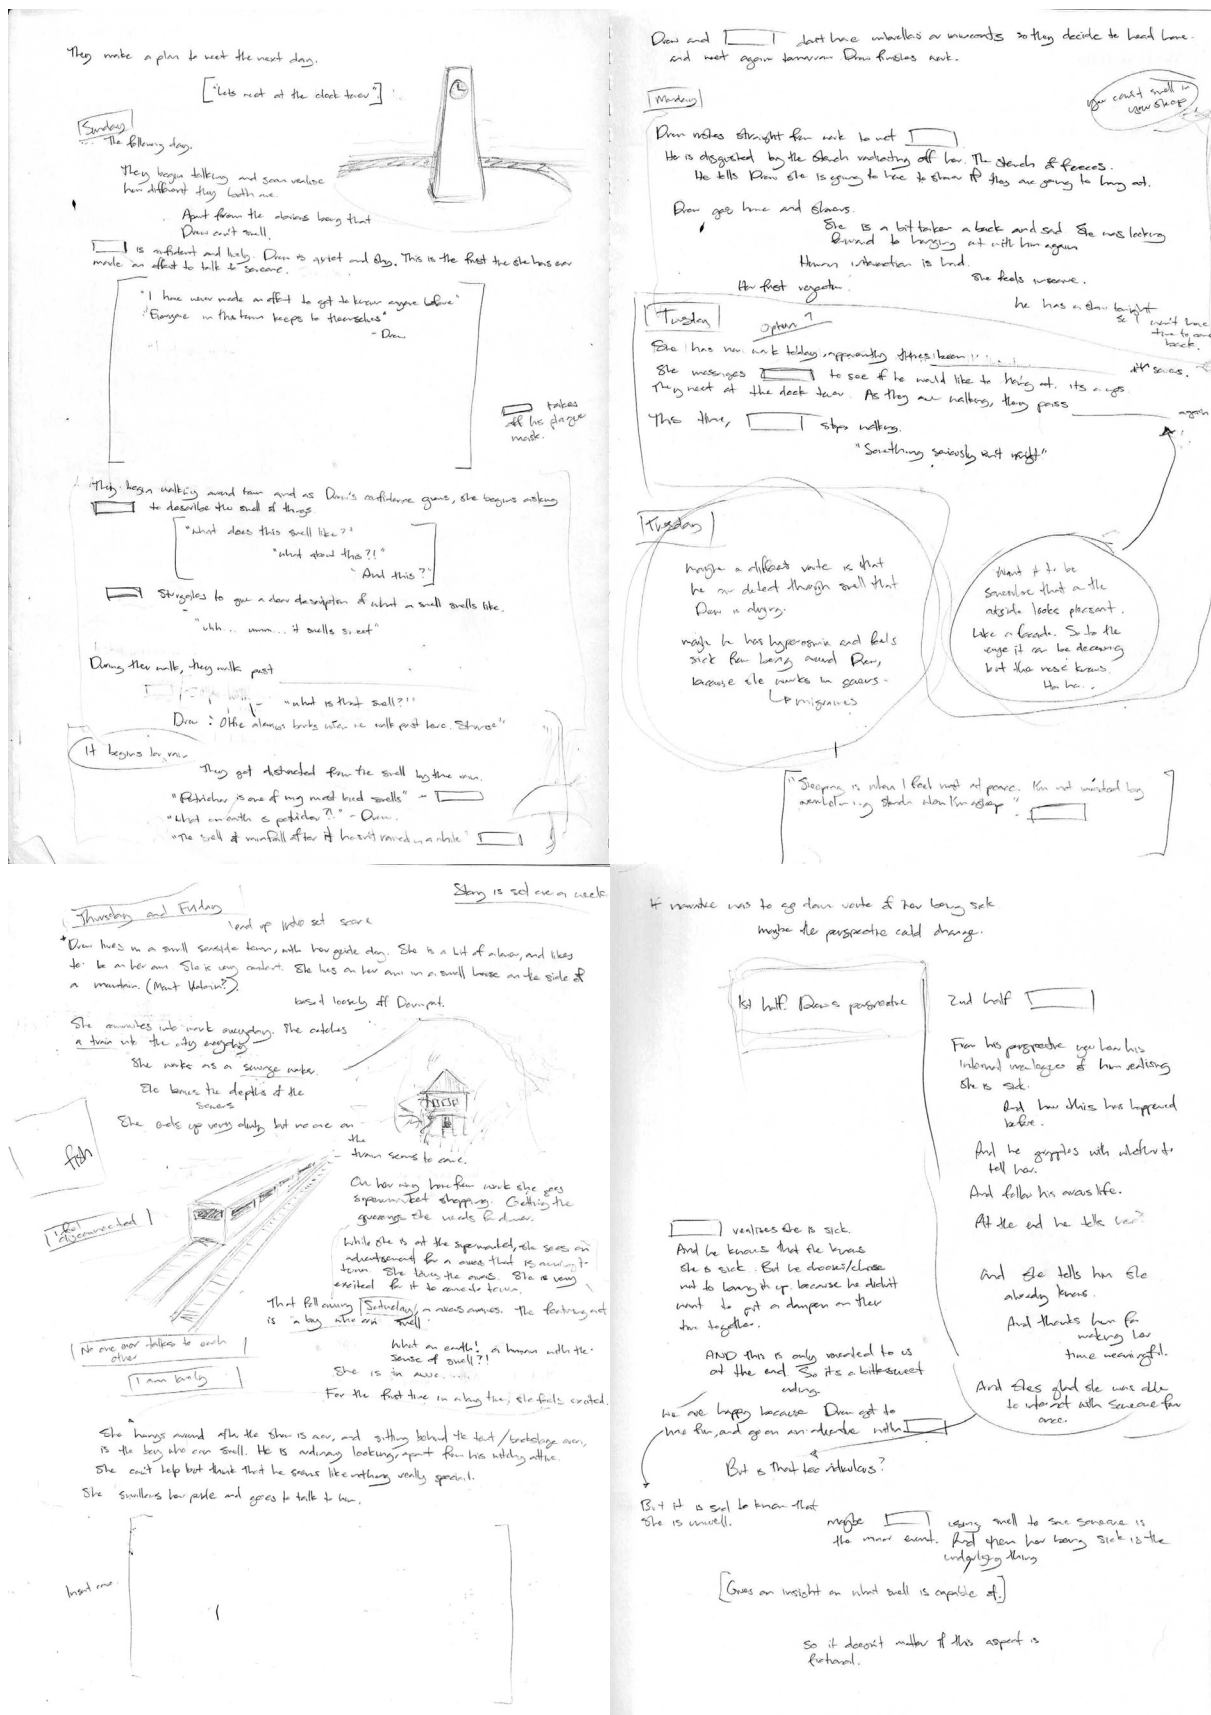 They make a plan to meet the next day.
["Lets meet at the clock tower".]
Sunday
... The following day.
They begin talking and soon realise
how different they both are.
Apart from the obvious being that
Drew can't smell.
is confident and lively. Drew is quiet and shy. This is the first time she has ever
made an effort to talk to someone.
"I have never made an effort to get to know anyone before"
"Everyone in this town keeps to themselves"
- Drew
takes
off his plague
mask.
They begin walking around town and as Drew's confidence grows, she begins asking
to describe the smell of things.
"What does this smell like?"
"what about this?!"
"And this?"
struggles to give a clear description of what a smell smells like.
"uhh... umm... it smells sweet"
During their walk, they walk past
"what is that smell?!"
Drew : Ollie always barks when we walk past here. Strange"
It begins to rain
They get distracted from the smell by the rain.
"Petrichor is one of my most loved smells" -
"What on earth is petrichor?!" - Drew.
"The smell of rainfall after it hasn't rained in a while"
Drew and don't have umbrellas or raincoats so they decide to head home.
and meet again tomorrow Drew finishes work.
you can't smell in
your sleep
Monday
Drew rushes straight from work to meet
He is disgusted by the stench radiating off her. The stench of faeces.
He tells Drew she is going to have to shower if they are going to hang out.
Drew goes home and showers.
She is a bit taken a back and sad. She was looking
forward to hanging out with him again
Human interaction is hard.
Her first rejection.
She feels insecure.
he has a show tonight
so won't have
time to come
back.
Tuesday
Option 1
She has no work today, apparently
She messages to see if he would like to hang out. Its a yes.
They meet at the clock tower. As they are walking, they pass
again
This time, stops walking.
"Something seriously isn't right"
Tuesday
maybe a different route is that
he can detect through smell that
Drew is dying.
maybe he has hyperosmia and feels
sick from being around Drew,
because she works in sewers.
↳ migraines
Want it to be
somewhere that on the
outside looks pleasant.
Like a facade. So to the
eye it can be deceiving
but the nose knows.
Ha ha..
"Sleeping is when I feel most at peace. I'm not
stench when I'm asleep".
Story is set over a week
Thursday and Friday
lead up intro set scene
Drew lives in a small seaside town, with her guide dog. She is a bit of a loner, and likes
to be on her own. She is very content. She lives on her own in a small house on the side of
a mountain.
based loosely off
She commutes into work everyday. She catches
a train into the city everyday
She works as a sewage worker.
She braves the depths of the
sewers
She ends up very dirty but no one on
the
train seems to care.
fish
disconnected
On her way home from work she goes
supermarket shopping. Getting the
groceries she needs for dinner.
While she is at the supermarket, she sees an
advertisement for a circus that is coming to
town. She loves the circus. She is very
excited for it to come to town.
That following Saturday, a circus arrives. The featuring act
is a boy who can smell.
No one ever talks to each
other
I am lonely
What on earth! a human with the
sense of smell?!
She is in awe.
For the first time in a long time, she feels excited.
She hangs around after the show is over, and sitting behind the tent / backstage area,
is the boy who can smell. He is ordinary looking, apart from his witchy attire.
She can't help but think that he seems like nothing really special.
She swallows her pride and goes to talk to him.
Insert convo
If narrative was to go down route of her being sick
maybe the perspective could change.
1st half. Drew's perspective
2nd half
From his perspective you hear his
internal monologues of him realising
she is sick.
And how this has happened
before.
And he grapples with whether to
tell her.
And follow his circus life.
At the end he tells her?
and she tells him she
already knows.
And thanks him for
making her
time meaningful.
And shes glad she was able
to interact with someone for
once.
realises she is sick.
And he knows that she knows
she is sick. But he chooses/chose
not to bring it up. because he didn't
want to put a dampen on their
time together.
AND this is only revealed to us
at the end. So it's a bittersweet
ending.
We are happy because Drew got to
have fun, and go on an adventure with
But is that too ridiculous?
But it is sad to know that
she is unwell.
maybe using smell to save someone is
the minor event. And then her being sick is the
underlying thing
[Gives an insight on what smell is capable of.]
So it doesn't matter if this aspect is
fictional.